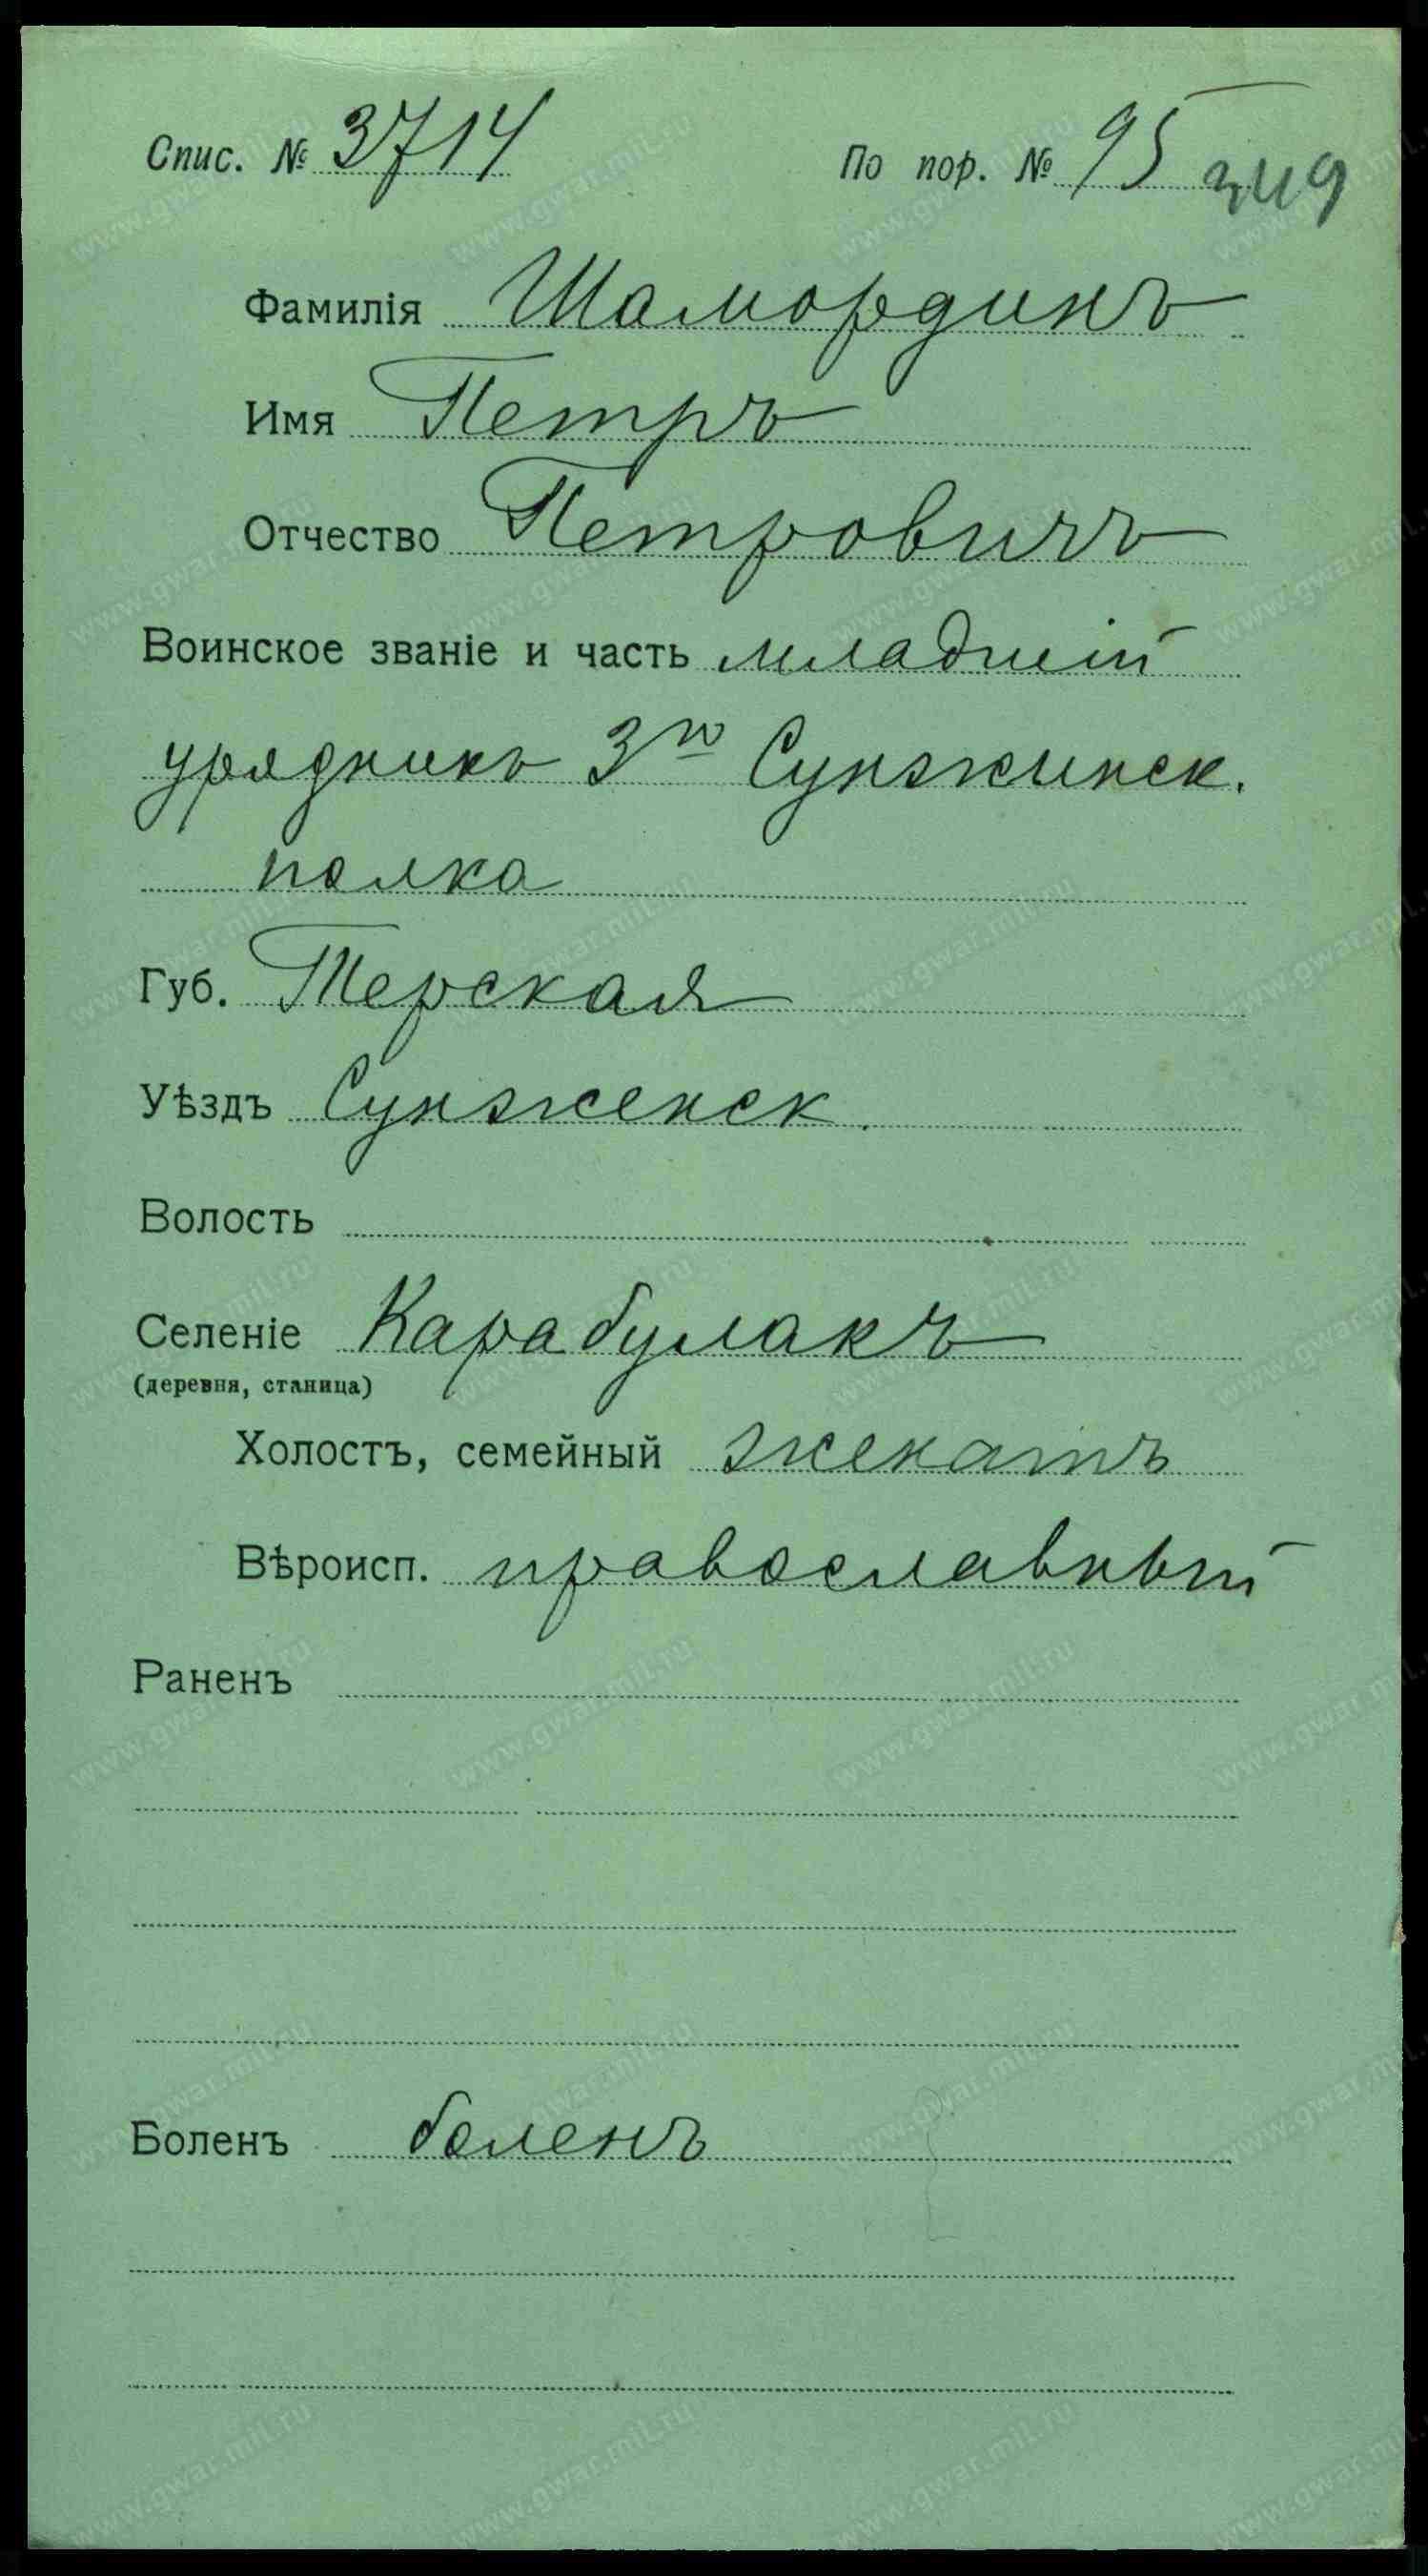 Спис. № 3714 По пор. № 95 349
Фамилія Шамординъ
Имя Петръ
Отчество Петровичъ
Воинское званіе и часть младшій
урядникъ 3го Сунжинск.
полка
Губ. Терская
Уѣздъ Сунженск.
Волость
Селеніе Карабулакъ
(деревня, станица)
Холостъ, семейный женатъ
Вѣроисп. православный
Раненъ
Боленъ боленъ
www.gwar.mil.ru